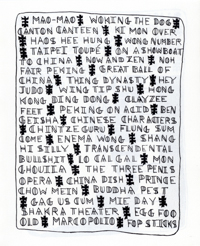 MAO-MAO WOKING THE DOG
CANTON CANTEEN KI MON OVER
HAO'S HEE HUNG WONG NUMBER
TAIPEI TOUPÉ ON A SHOWBOAT
TO CHINA NOW AND ZEN NOH
FAIR PEKING GREAT BALL OF
CHINA THING DYNASTY HEY
JUDO WING TIP SHU HONG
KONG DING DONG CLAYZEE
FEET PEKING ON ACID BEN
GEISHA CHINESE CHARACTERS
CHINTZE GURU FLUNG SUM
COME ENEMA WONG SHANG
HI SILLY TRANSCENDENTAL
BULLSHIT LO CAL GAL MON
CHOUIIA THE THREE PENIS
OPERA CHINA DISH PRINCE
CHOW MEIN BUDDHA PEST
GAG US CUM MIE DAY
SHAKRA THEATER EGG FOO
OLD MARCOPOLIO FOP STICKS